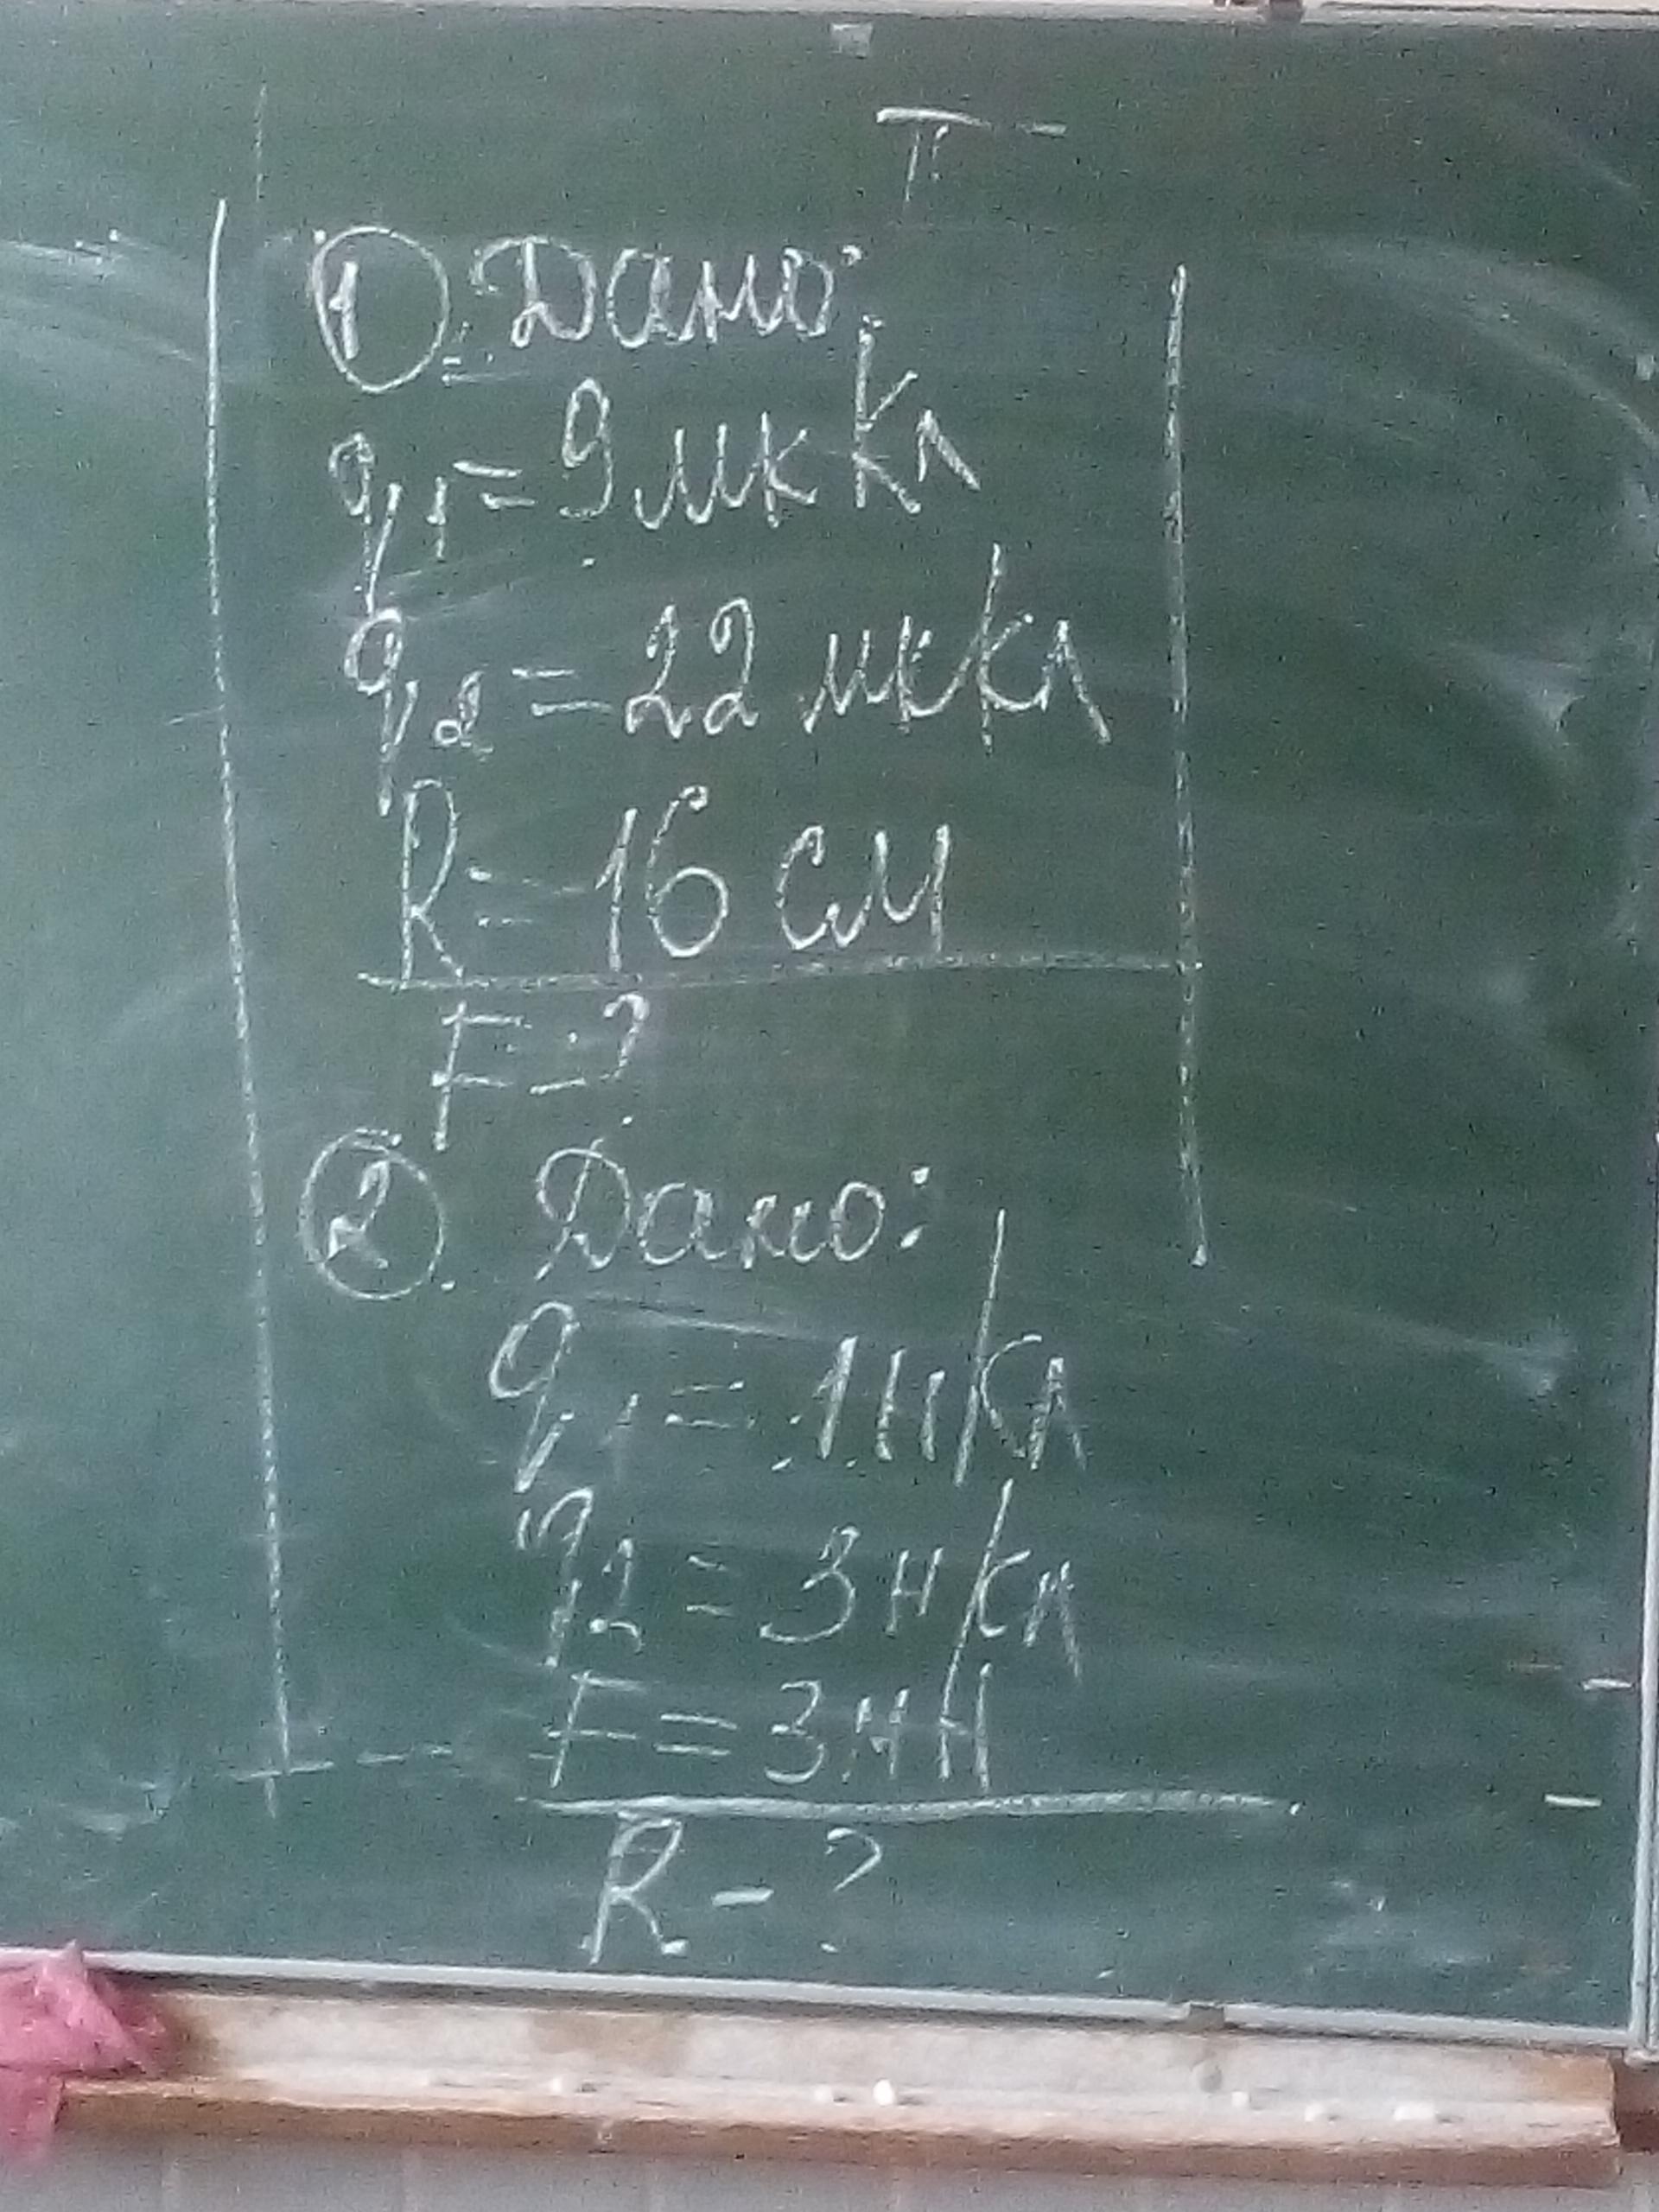 ①. Дано:
q₁ = 9 мкКл
q₂ = 22 мкКл
R = 16 см
F = ?
②. Дано:
q₁ = 1 нКл
q₂ = 3 нКл
F = 3 мН
R - ?